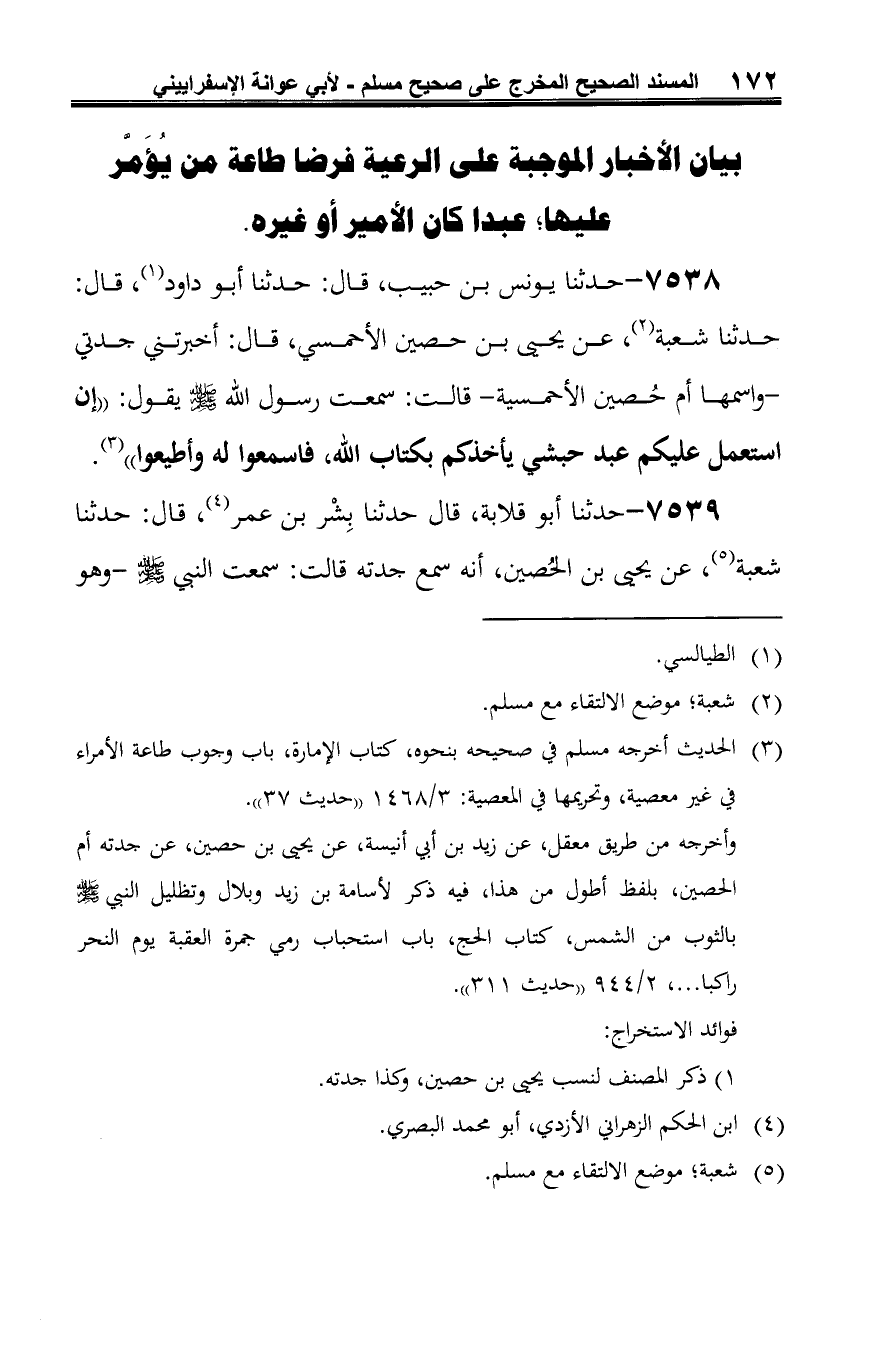 ١٧٢ المسند الصحيح المخرج على صحيح مسلم - لأبي عوانة الإسفراييني
بيان الأخبار الموجبة على الرعية فرضا طاعة من يُؤَمَّر
عليها؛ عبدا كان الأمير أو غيره.
٧٥٣٨-حدثنا يونس بن حبيب، قال: حدثنا أبو داود(١)، قال:
حدثنا شعبة(٢)، عن يحيى بن حصين الأحمسي، قال: أخبرتني جدتي
-واسمها أم حُصين الأحمسية- قالت: سمعت رسول الله ﷺ يقول: ((إن
استعمل عليكم عبد حبشي يأخذكم بكتاب الله، فاسمعوا له وأطيعوا))(٣).
٧٥٣٩-حدثنا أبو قلابة، قال حدثنا بِشْر بن عمر(٤)، قال: حدثنا
شعبة(٥)، عن يحيى بن الحُصين، أنه سمع جدته قالت: سمعت النبي ﷺ -وهو
(١) الطيالسي.
(٢) شعبة؛ موضع الالتقاء مع مسلم.
(٣) الحديث أخرجه مسلم في صحيحه بنحوه، كتاب الإمارة، باب وجوب طاعة الأمراء
في غير معصية، وتحريمها في المعصية: ١٤٦٨/٣ ((حديث ٣٧)).
وأخرجه من طريق معقل، عن زيد بن أبي أنيسة، عن يحيى بن حصين، عن جدته أم
الحصين، بلفظ أطول من هذا، فيه ذكر لأسامة بن زيد وبلال وتظليل النبي ﷺ
بالثوب من الشمس، كتاب الحج، باب استحباب رمي جمرة العقبة يوم النحر
راكبا...، ٩٤٤/٢ ((حديث ٣١١)).
فوائد الاستخراج:
١) ذكر المصنف لنسب يحيى بن حصين، وكذا جدته.
(٤) ابن الحكم الزهراني الأزدي، أبو محمد البصري.
(٥) شعبة؛ موضع الالتقاء مع مسلم.